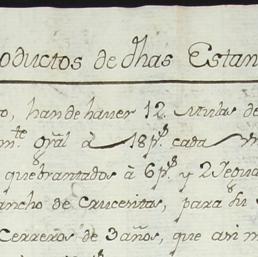 oductos de dhas Estan
o, han de haver 12 Mulas de
mte gral à 18 ps cada
quebrantados à 6 ps y 2 Yegua
ancho de Crucesitas, para su
Cerreros de 3 años, que asi m